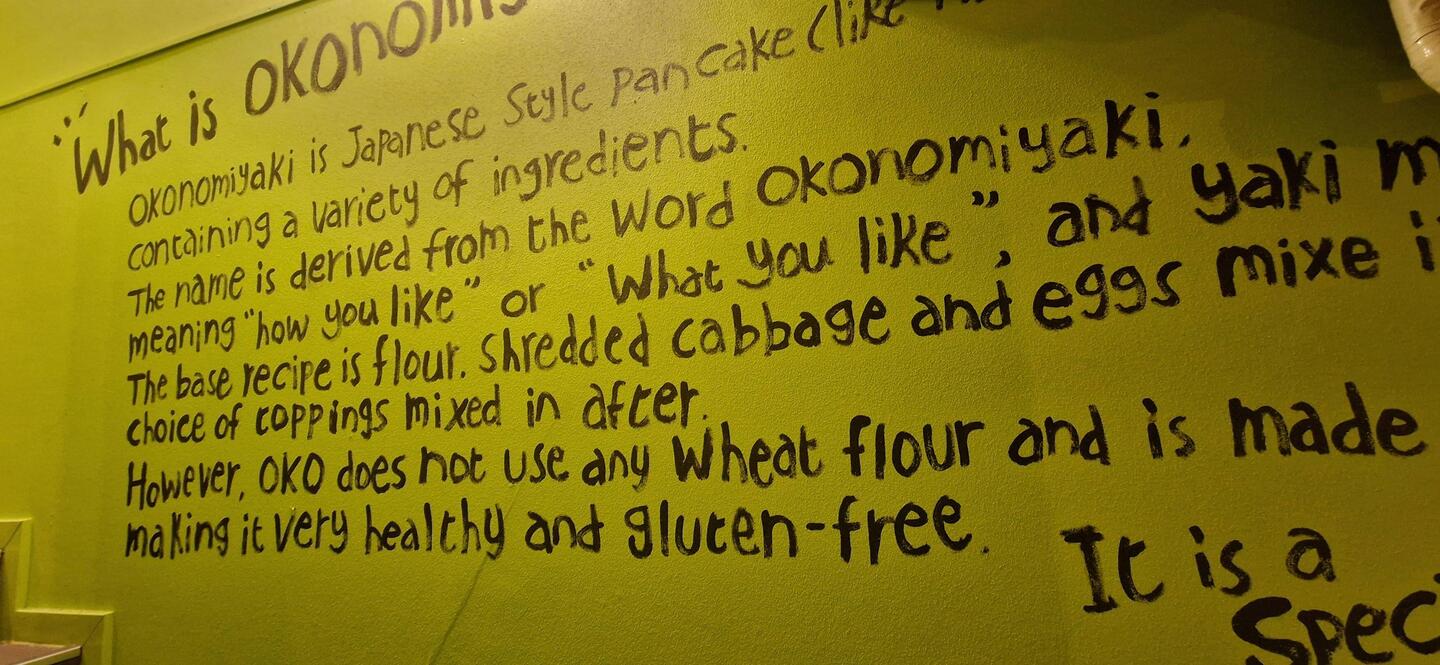 "What is OKONOMIY
OKONOMIYAKI is JAPANESE Style pancake (like
containing a variety of ingredients.
The name is derived from the Word OKONOMIYAKI,
meaning "how you like" or "What you like", and yaki m
The base recipe is flour. Shredded cabbage and eggs mixe i
choice of toppings mixed in after.
However, OKO does not use any Wheat flour and is made
making it very healthy and gluten-free.
It is a
Spec